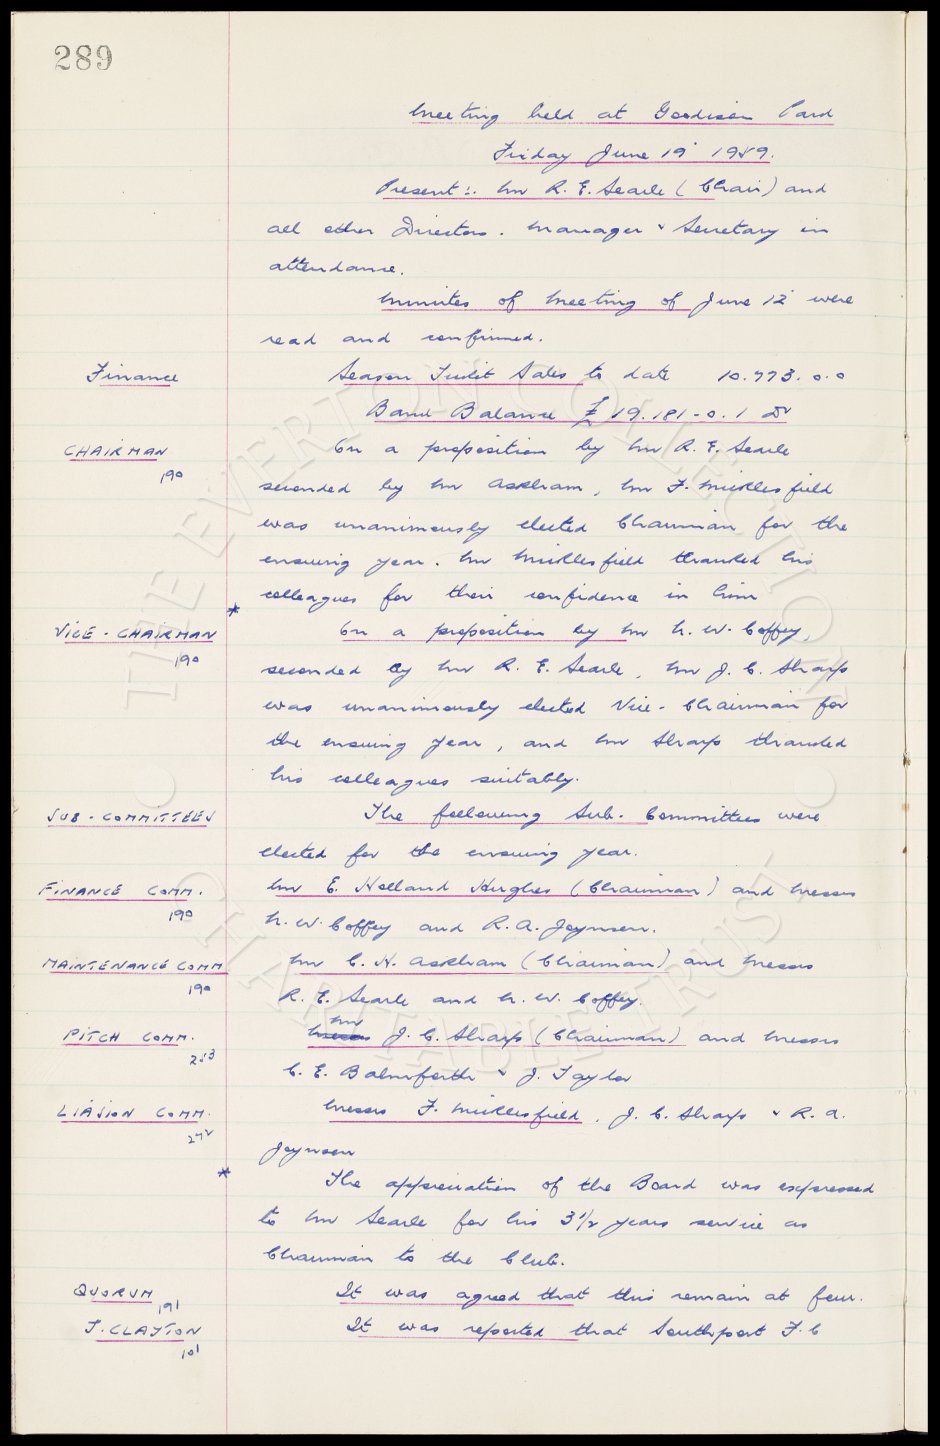 289
Meeting held at Goodison Park
Friday June 19 1959.
Present:. Mr R. E. Searle (Chair) and
all other Directors. Manager & Secretary in
attendance.
Minutes of Meeting of June 12 were
read and confirmed.
Finance
Season Ticket Sales to date 10.773.0.0
Bank Balance £19.181-0.1 Dr
CHAIRMAN
190
On a proposition by Mr R. E. Searle
seconded by Mr Askham, Mr F. Micklesfield
was unanimously elected Chairman for the
ensuing year. Mr Micklesfield thanked his
colleagues for their confidence in him
*
VICE-CHAIRMAN
190
On a proposition by Mr N. W. Coffey,
seconded by Mr R. E. Searle, Mr J. C. Sharp
was unanimously elected Vice-Chairman for
the ensuing year, and Mr Sharp thanked
his colleagues suitably.
SUB-COMMITTEES
The following Sub-Committees were
elected for the ensuing year.
FINANCE COMM.
190
Mr E. Holland Hughes (Chairman) and Messrs
N. W. Coffey and R. A. Joynson.
MAINTENANCE COMM
190
Mr C. H. Askham (Chairman) and Messrs
R. E. Searle and N. W. Coffey.
PITCH COMM.
253
Mr
Messrs J. C. Sharp (Chairman) and Messrs
C. E. Balmforth & J. Taylor
LIASION COMM.
272
Messrs F. Micklesfield, J. C. Sharp & R. A.
Joynson
*
The appreciation of the Board was expressed
to Mr Searle for his 3½ years service as
Chairman to the Club.
QUORUM
191
It was agreed that this remain at four.
J. CLAYTON
101
It was reported that Southport F.C
THE EVERTON COLLECTION
CHARITABLE TRUST